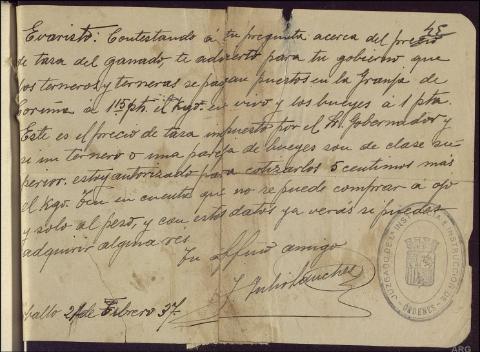 45
Evaristo: Contestando á tu pregunta acerca del precio
de tasa del ganado, te advierto para tu gobierno, que
los terneros y terneras se pagan puestos en la Granja de
Coruña a 1'15 pts. el kgo. en vivo y los bueyes á 1 pta.
Este es el precio de tasa impuesto por el Sr. Gobernador y
si un ternero o una pareja de bueyes son de clase su
perior, estoy autorizado para cotizarlos 5 centimos más
el kgo. Ten en cuenta que no se puede comprar a ojo
y solo al peso, y con estos datos ya verás si puedes
adquirir alguna res.
Tu affmo amigo
Julio Sánchez
21 de Febrero 37.
JUZGADO DE INSTRUCCION DE
ORDENES
ARG